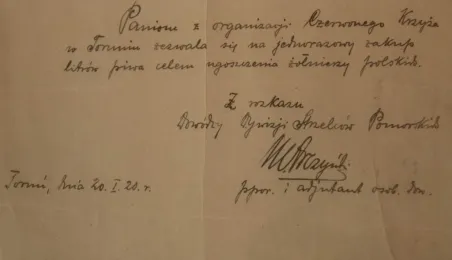 Paniom z organizacji Czerwonego Krzyża
w Toruniu zezwala się na jednorazowy zakup
litrów piwa celem ugoszczenia żołnierzy polskich.
Z rozkazu
Dowódcy Dywizji Strzelców Pomorskich
ppor. i adjutant osob. dow.
Toruń, dnia 20. I. 20. r.